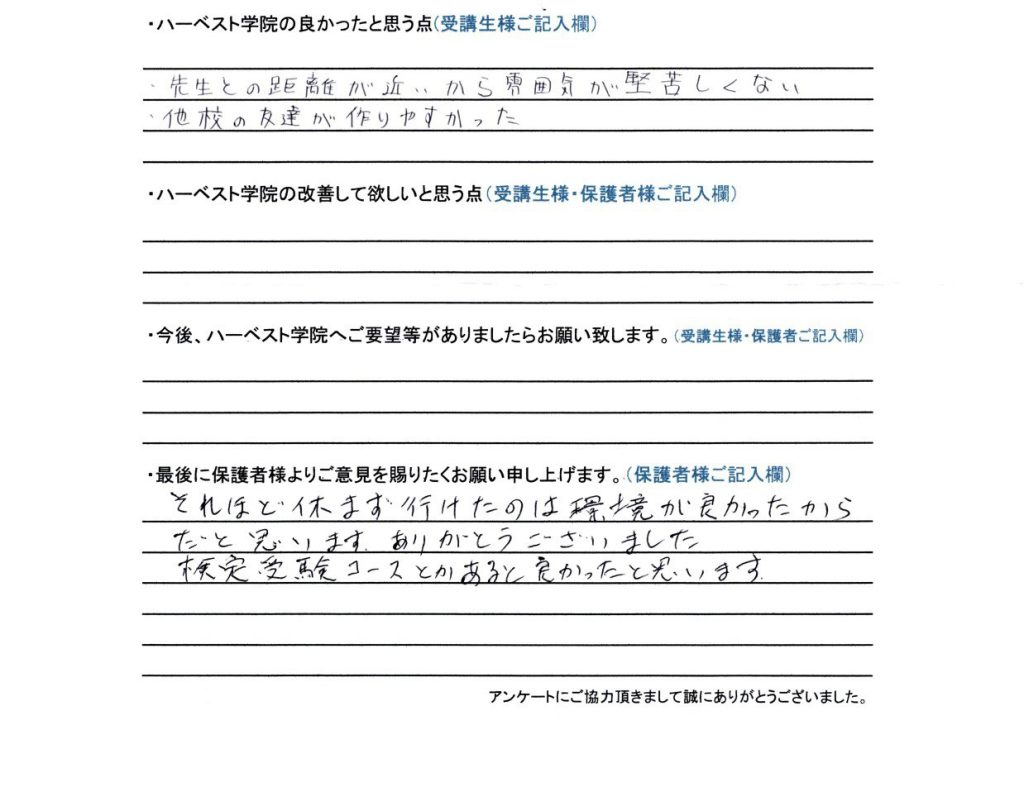 ・ハーベスト学院の良かったと思う点(受講生様ご記入欄)
・先生との距離が近いから雰囲気が堅苦しくない
・他校の友達が作りやすかった
・ハーベスト学院の改善して欲しいと思う点(受講生様・保護者様ご記入欄)
・今後、ハーベスト学院へご要望等がありましたらお願い致します。(受講生様・保護者ご記入欄)
・最後に保護者様よりご意見を賜りたくお願い申し上げます。(保護者様ご記入欄)
それほど休まず行けたのは環境が良かったから
だと思います。ありがとうございました
検定受験コースとかあると良かったと思います。
アンケートにご協力頂きまして誠にありがとうございました。